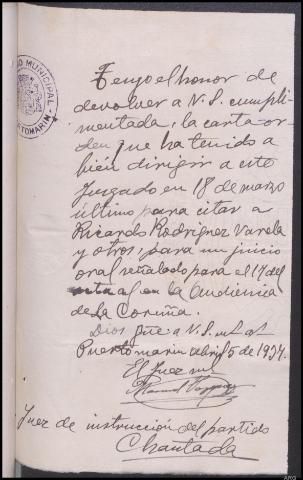 JUZGADO MUNICIPAL - PUERTOMARIN
Tengo el honor de
devolver a V.S. cumpli-
mentada, la carta-or-
den que ha tenido a
bién dirigir a este
Juzgado en 18 de marzo
último para citar a
Ricardo Rodriguez Varela
y otros, para un juicio
oral señalado para el 17 del
actual en la Audiencia
de La Coruña.
Dios gue a V.S.
Puertomarin abril 5 de 1937.
El Juez ml
Manuel
Juez de instrucción del partido
Chantada